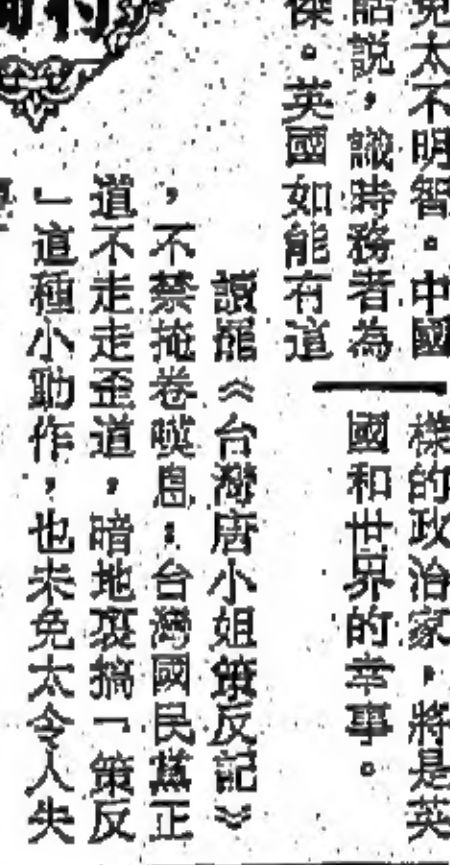 免太不明智。中國
話說，識時務者為
傑。英國如能有這
樣的政治家，將是英
國和世界的幸事。
讀罷《台灣唐小姐策反記》
，不禁掩卷嘆息：台灣國民黨正
道不走走歪道，暗地裏搞「策反
」這種小動作，也未免太令人失